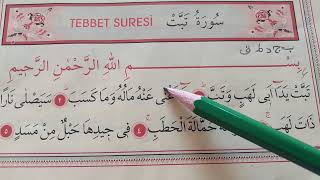 TEBBET SURESİ سُورَةُ تَبَّتْ
بِسْـــمِ اللّٰهِ الرَّحْمٰنِ الرَّحِيمِ
تَبَّتْ يَدَٓا اَبٖى لَهَبٍ وَتَبَّ عَنْهُ مَالُهُ وَمَا كَسَبَ ٢ سَيَصْلٰى نَارًا
ذَاتَ لَهَبٍ حَمَّالَةَ الْحَطَبِ ٤ فٖى جٖيدِهَا حَبْلٌ مِنْ مَسَدٍ ٥